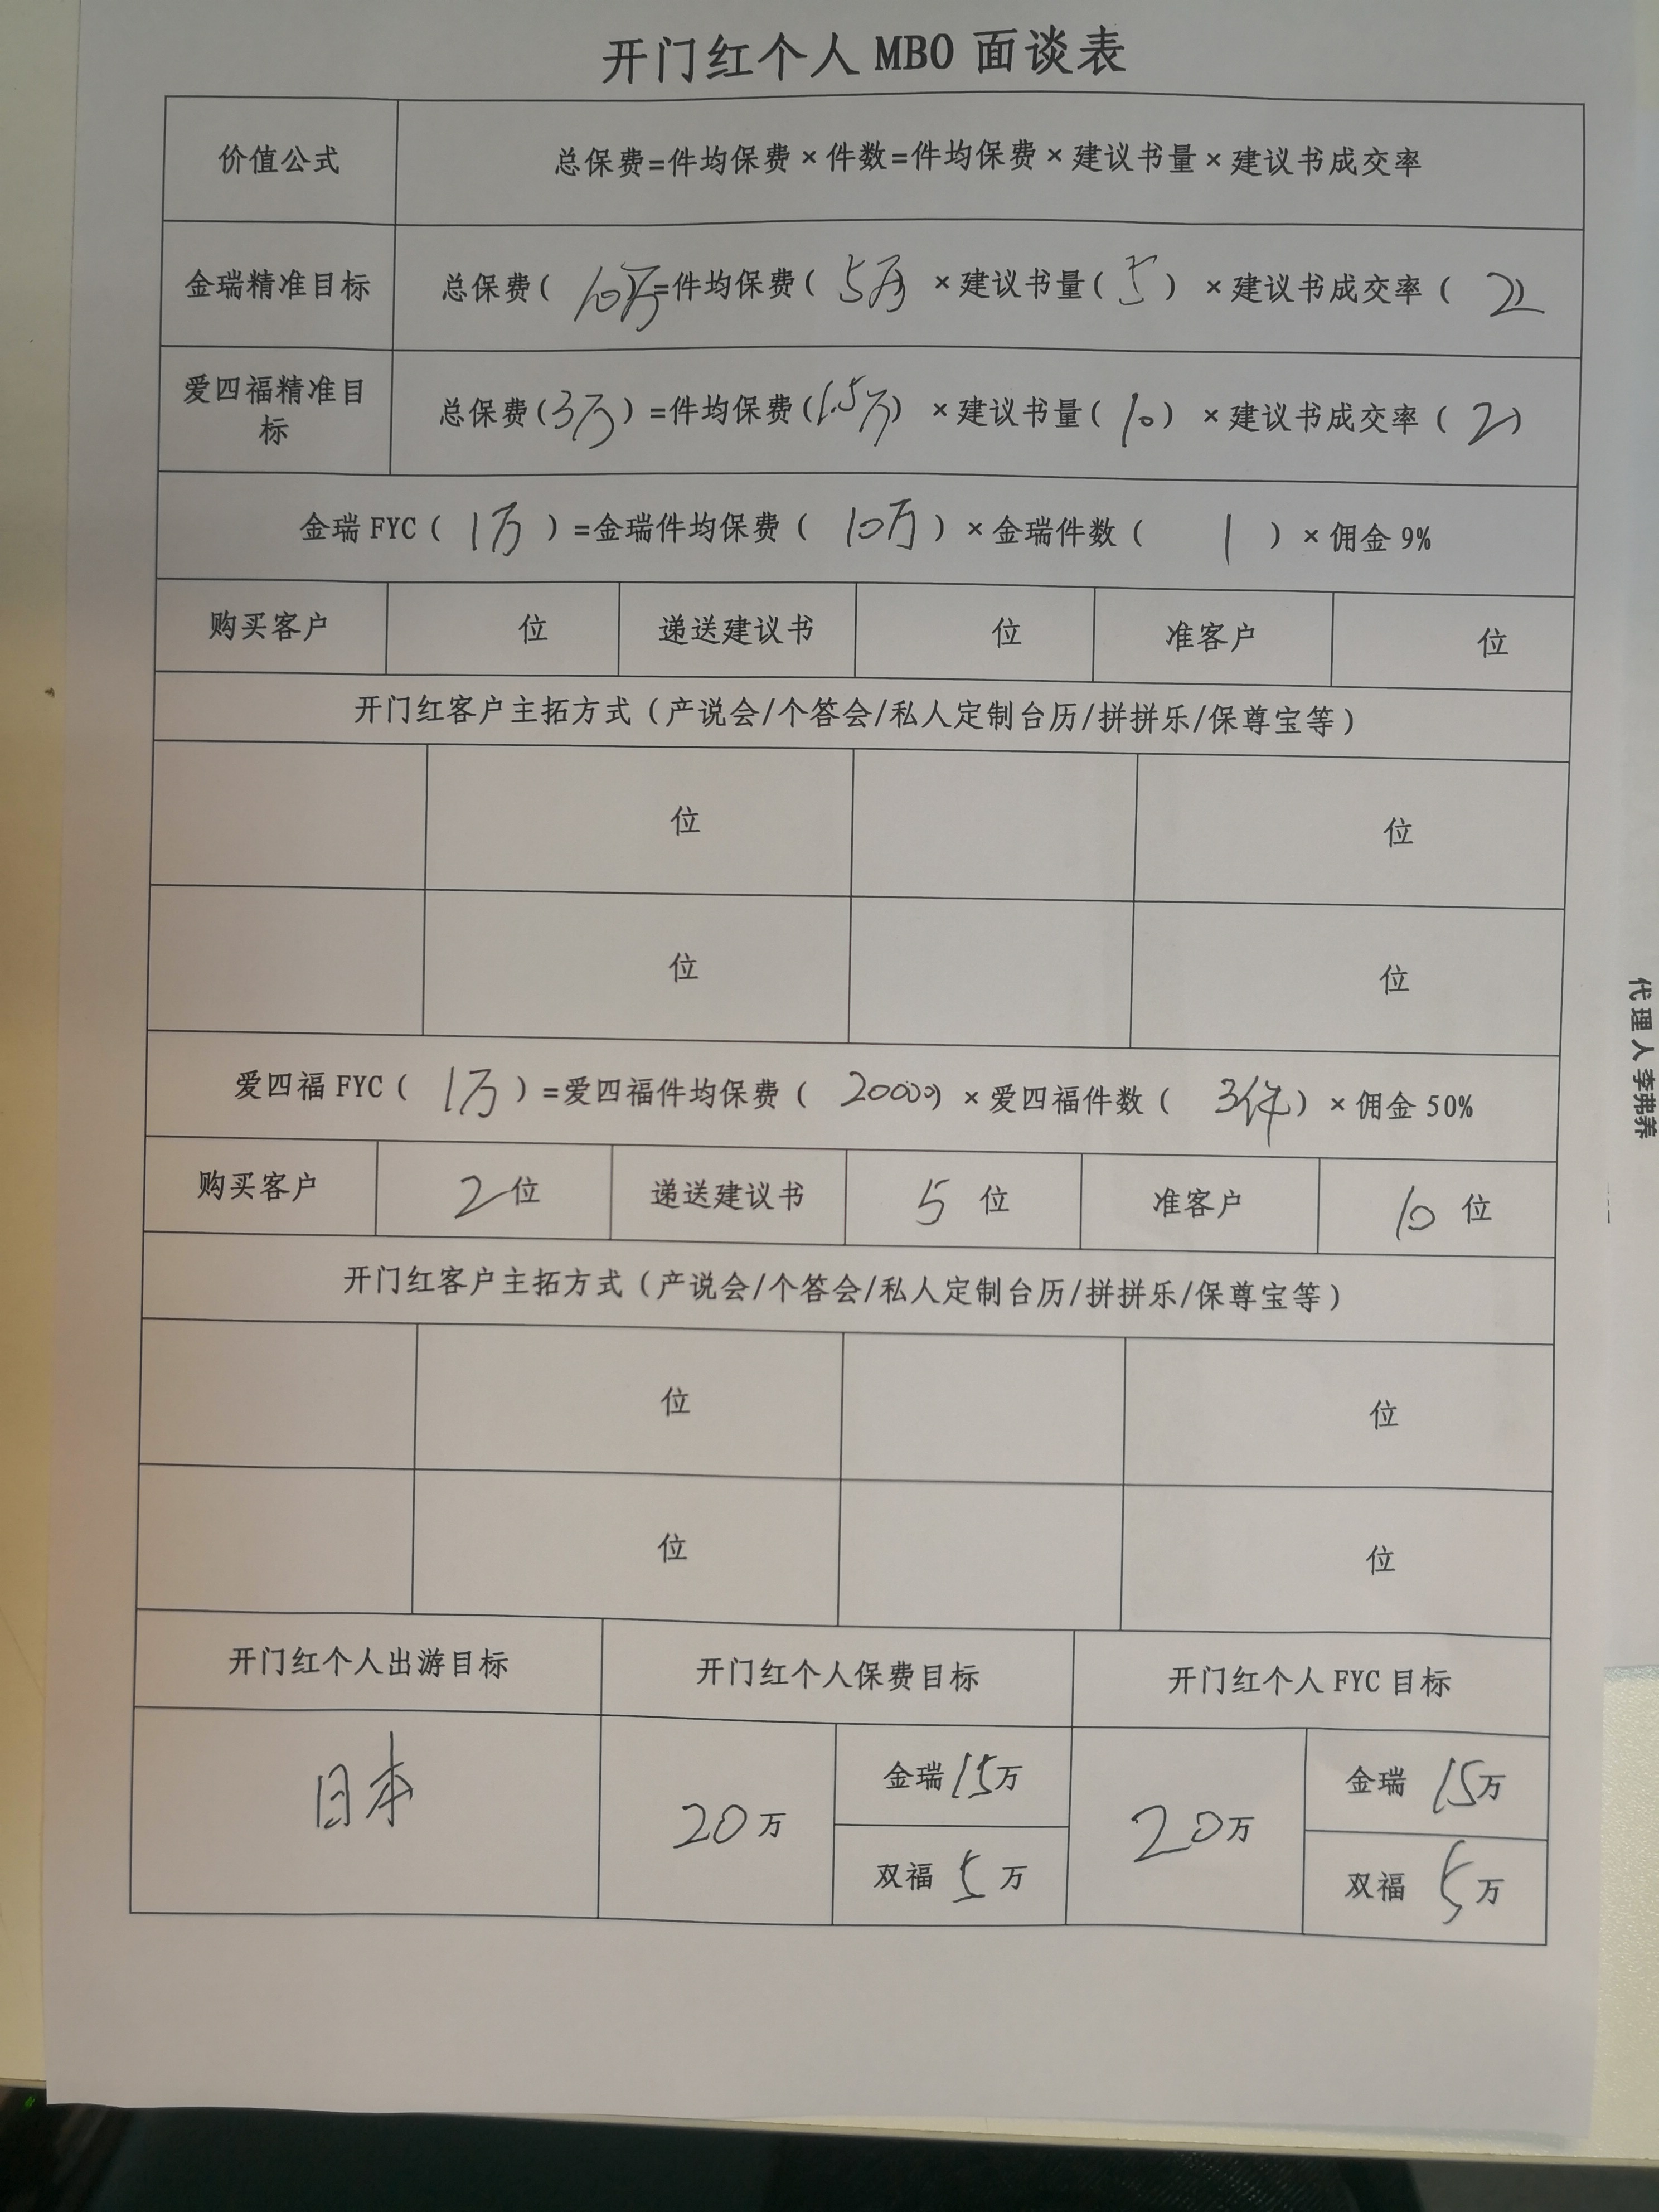 开门红个人 MBO 面谈表
价值公式
总保费=件均保费×件数=件均保费×建议书量×建议书成交率
金瑞精准目标
总保费( 10万=件均保费( 5万 ×建议书量( 5 ) ×建议书成交率( 2)
爱四福精准目
标
总保费(3万)=件均保费(1.5万) ×建议书量(10) ×建议书成交率(2)
金瑞 FYC( 1万 )=金瑞件均保费( 10万 )×金瑞件数( 1 )×佣金 9%
购买客户 位 递送建议书 位 准客户 位
开门红客户主拓方式(产说会/个答会/私人定制台历/拼拼乐/保尊宝等)
位 位
位 位
爱四福 FYC( 1万 )=爱四福件均保费( 20000)×爱四福件数( 3件)×佣金 50%
购买客户 2位 递送建议书 5 位 准客户 10 位
开门红客户主拓方式(产说会/个答会/私人定制台历/拼拼乐/保尊宝等)
位 位
位 位
开门红个人出游目标 开门红个人保费目标 开门红个人 FYC 目标
日本
20万
金瑞 15万
双福 5 万
20万
金瑞 15万
双福 5万
代理人李弗养